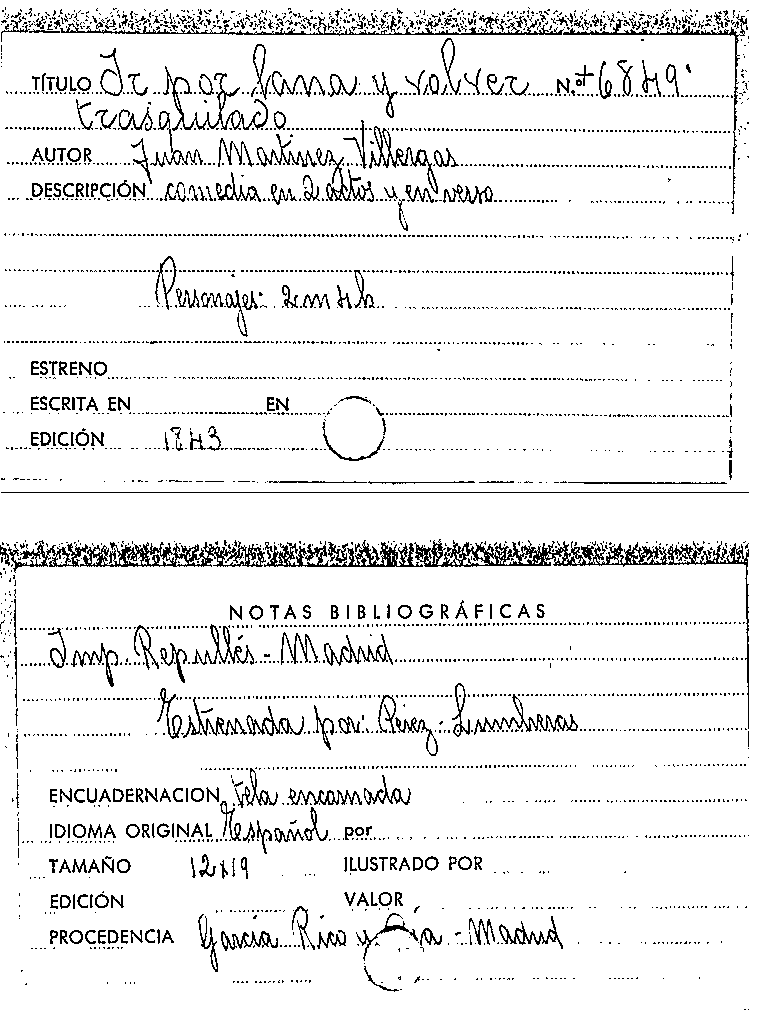 TÍTULO Ir por lana y volver N.º t 6849
trasquilado
AUTOR Juan Martinez Villergas
DESCRIPCIÓN comedia en 2 actos y en verso
Personajes: 2m 4h
ESTRENO
ESCRITA EN EN
EDICIÓN 1843
NOTAS BIBLIOGRÁFICAS
Imp. Repullés - Madrid
Estrenada por: Pérez - Lumbreras
ENCUADERNACION tela encarnada
IDIOMA ORIGINAL Español por
TAMAÑO 12x19 ILUSTRADO POR
EDICIÓN VALOR
PROCEDENCIA García Rico y Cía - Madrid